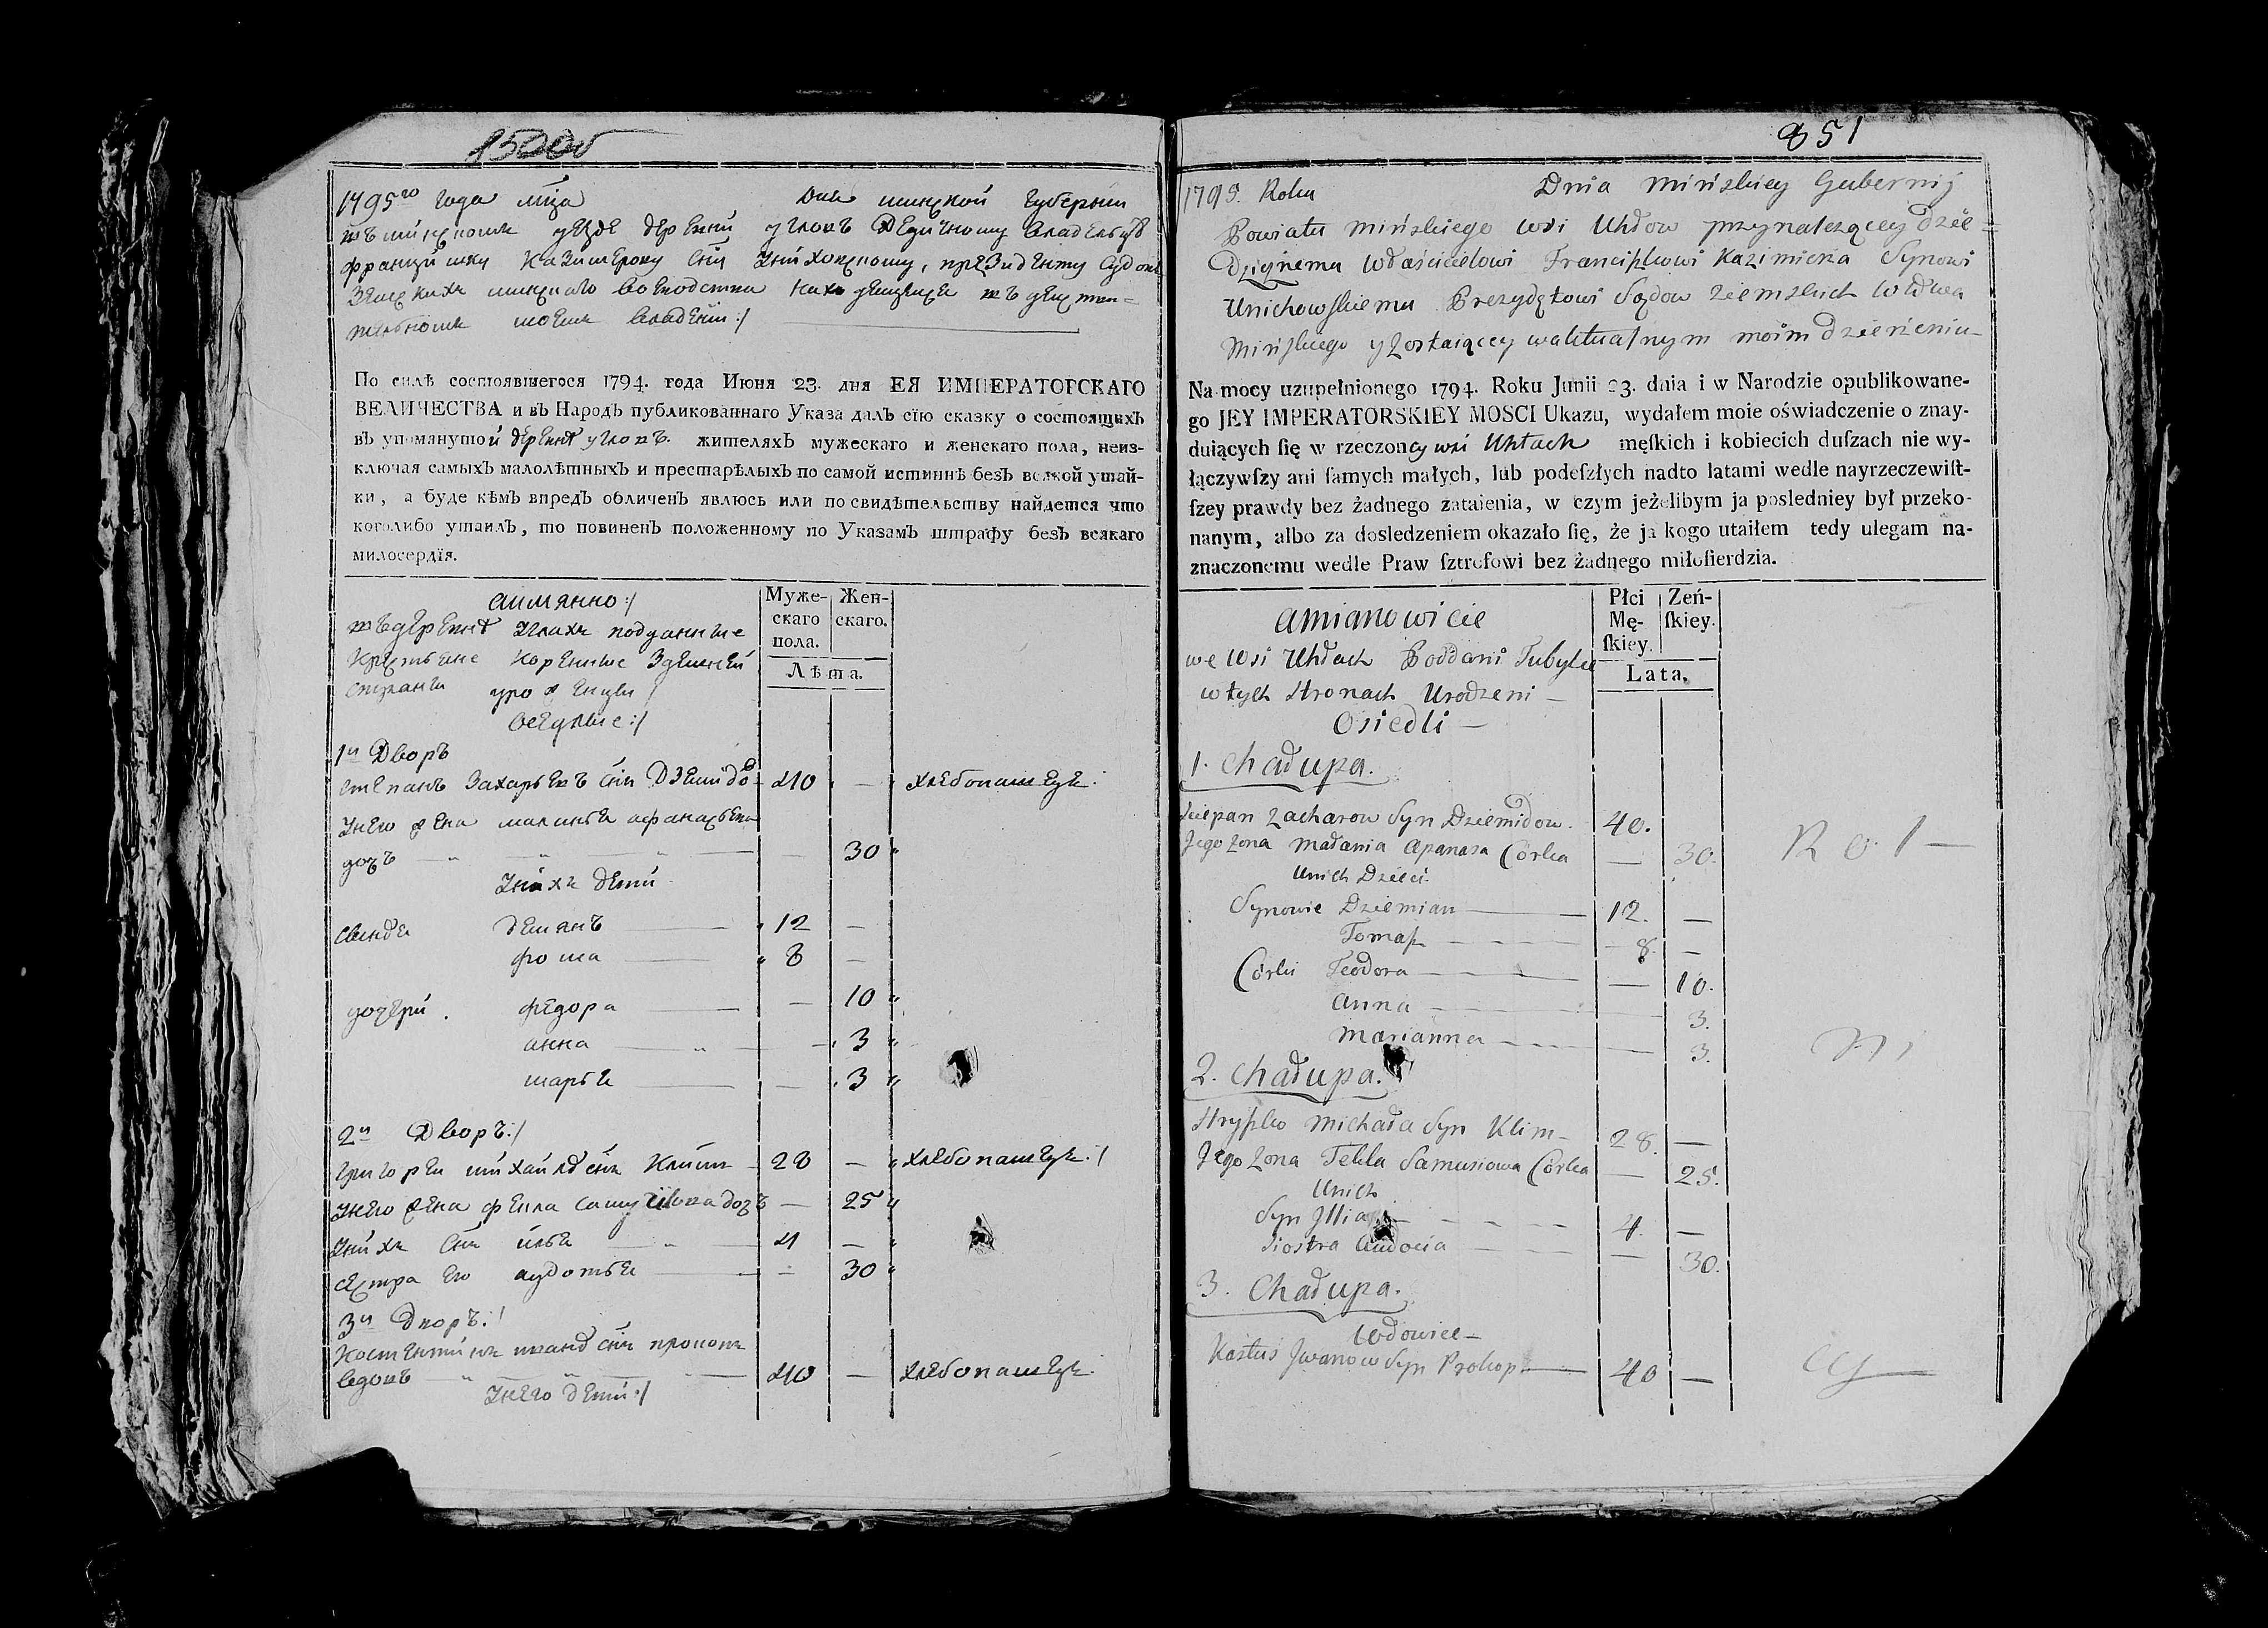 851
1795го Года мца Дня минской Губернии
въ минскомъ уезде деревни углов Дедичному владельцу
Францишку Казимерову сну Униховскому, президенту Судовъ
Земских минского воеводства находящейся въ действи=
тельномъ моемъ владении :/
По силѣ состоявшегося 1794. года Июня 23. дня ЕЯ ИМПЕРАТОРСКАГО
ВЕЛИЧЕСТВА и въ Народъ публикованнаго Указа далъ сїю сказку о состоящихъ
въ упомянутой деревне жителяхъ мужескаго и женскаго пола, неиз-
ключая самыхъ малолѣтныхъ и престарѣлыхъ по самой истиннѣ безъ всякой утай-
ки, а буде кѣмъ впредъ обличенъ явлюсь или по свидѣтельству найдется что
коголибо утаилъ, то повиненъ положенному по Указамъ штрафу безъ всякаго
милосердїя.
аимянно :/
Муже-скаго пола.
Жен-скаго.
Лѣта.
въ деревне подданные
крестьяне коренные здешней
страны урожденцы /
оседлые :/
1й Дворъ
степанъ Захарьевъ снъ Дземидо- 40 — хлебопашецъ.
У него жена маланья афанасьева
дочъ — 30
У них дети
сыновья демянъ 12 —
фома 8 —
дочери. федора — 10
анна — 3
марья — 3
2й Дворъ :/
григореи михайлов снъ Клим 28 — хлебопашецъ :/
У него жена фекла самуйлова дочъ — 25
У них снъ илья 4 —
сестра его авдотья — 30
3й Дворъ :/
Костентин иванов снъ прокоп
вдовъ 40 — хлебопашецъ.
У него дети :/
1795. Roku Dnia Mińskiey Gubernij
Powiatu Mińskiego wsi Uhłow przynależącey dzie=
dzicznemu Właścicielowi Franciszkowi Kazimierza Synowi
Unichowskiemu Prezydętowi Sądow Ziemskich Wdztwa
Mińskiego y zostaiącey w aktualnym moim dzierżeniu
Na mocy uzupełnionego 1794. Roku Junii 23. dnia i w Narodzie opublikowane-
go JEY IMPERATORSKIEY MOSCI Ukazu, wydałem moie oświadczenie o znay-
duiących ſię w rzeczoney wsi Uhłach męſkich i kobiecich duſzach nie wy-
łączywſzy ani ſamych małych, lub podeſzłych nadto latami wedle nayrzeczewiſt-
ſzey prawdy bez żadnego zataienia, w czym jeżelibym ja posledniey był przeko-
nanym, albo za dosledzeniem okazało ſię, że ja kogo utaiłem tedy ulegam na-
znaczonemu wedle Praw ſztrofowi bez żadnego miłoſierdzia.
Amianowicie
Płci Mę-ſkiey.
Zeń-ſkiey.
Lata.
we Wsi Uhłach Poddani Tubylcе
w tych Stronach Urodzeni —
Osiedli —
1. Chałupa.
Sciepan Zacharow Syn Dziemidow. 40.
Jego Zona Małania Apanasa Córka — 30.
Unich Dzieci
Synowie Dziemian 12. —
Tomasz 8. —
Córki Teodora — 10.
Anna 3.
Marianna 3.
Rol—
ni
2. Chałupa.
Hryszko Michała Syn Klim— 28. —
Jego Zona Tekla Samusiowa Córka — 25.
Unich
Syn Illia 4. —
Siostra Audocia — 30.
3. Chałupa.
Wdowiec—
Kastuś Jwanow Syn Prokop 40 —
cy